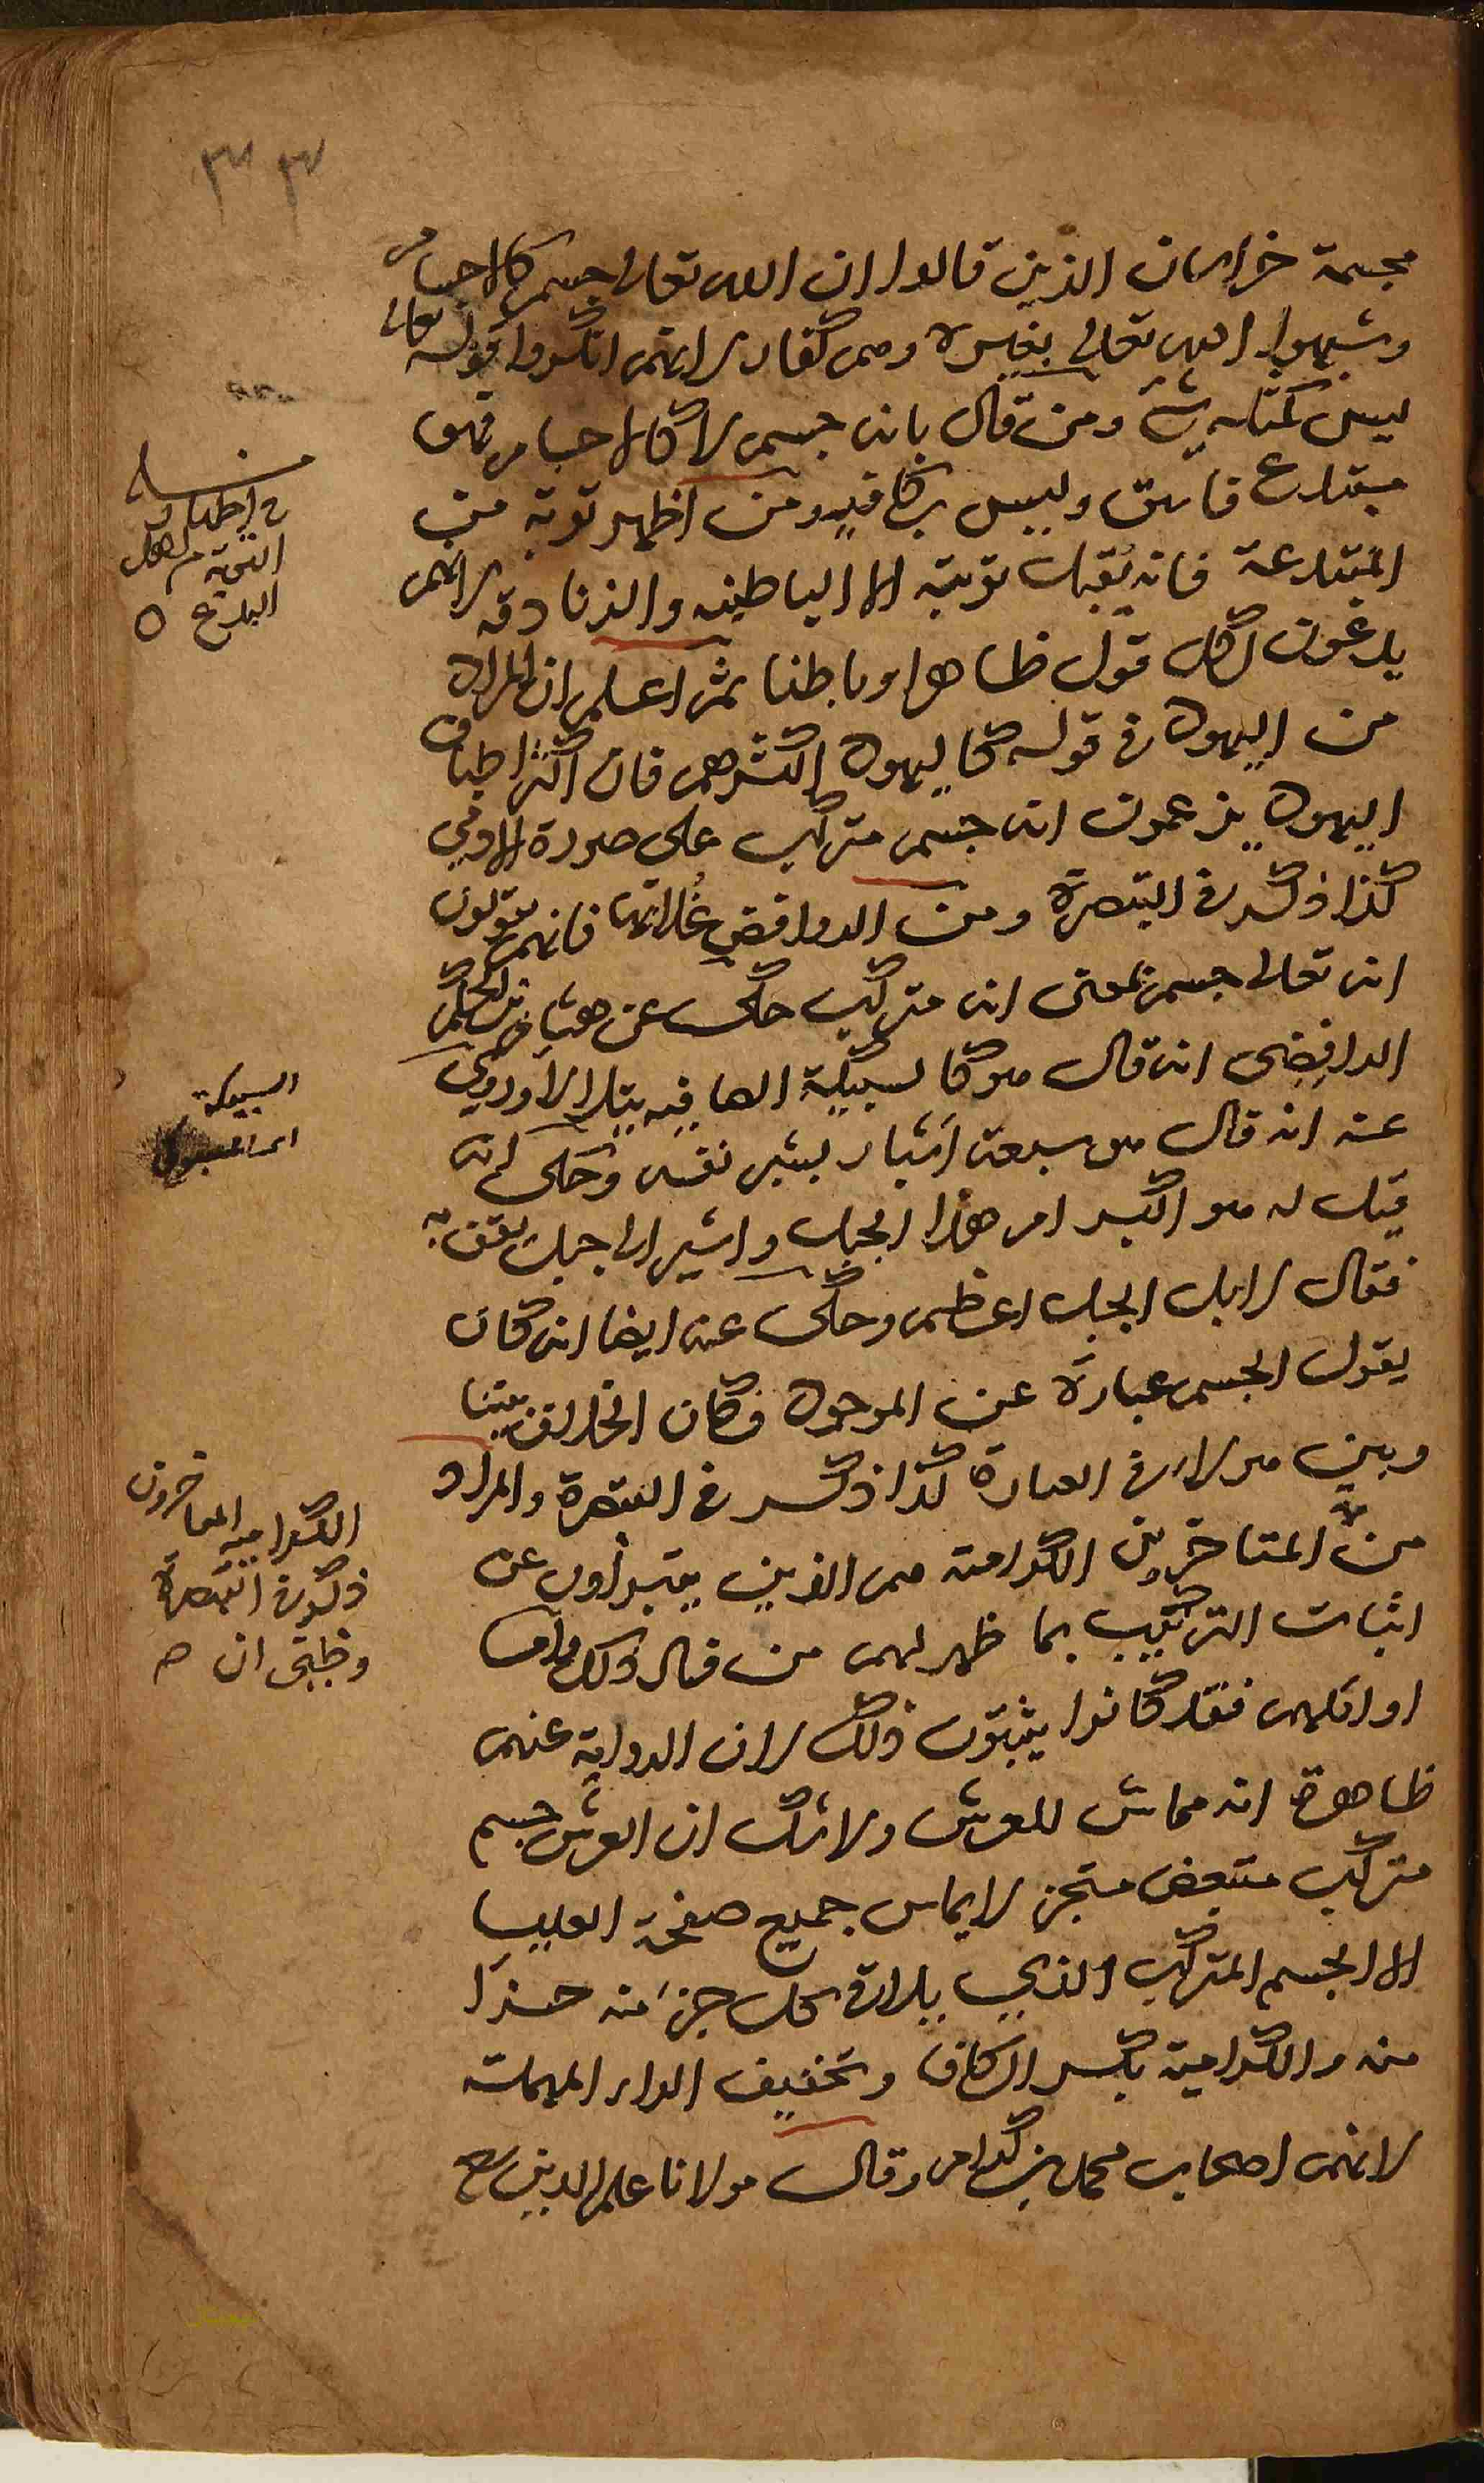 ٣٣
مجسمة خراسان الذين قالوا ان الله تعالى جسم كالاجسام
وشبهوا الله تعالى بغيره وهم كفار لانهم انكروا قوله تعالى
ليس كمثله شيء ومن قال بانه جسم لا كالاجسام فهو
مبتدع فاسق وليس بكافر ومن اظهر توبة من
المبتدعة فانه يقبل توبته الا الباطنيه والزنادقه لانهم
يدعون لكل قول ظاهرا وباطنا ثم اعلم ان المراد
من اليهود في قوله كاليهود اكثرهم فان اكثر اطباق
اليهود يزعمون انه جسم متركب على صورة الادمي
كذا ذكر في التبصرة ومن الروافض غلاتها فانهم يقولون
انه تعالى جسم بمعنى انه متركب حكي عن هشام بن الحكم
الرافضى انه قال هو كالسبيكة الصافيه يتلالا وروي
عنه انه قال هو سبعة اشبار بشبر نفسه وحكى انه
قيل له هو اكبر ام هذا الجبل واشير الى جبل بقربه
فقال لا بل الجبل اعظم وحكى عنه ايضا انه كان
يقول الجسم عبارة عن الموجود فكان الخلاف بيننا
وبين هولاء في العبارة كذا ذكر في التبصرة والمراد
من المتاخرين الكرامية هم الذين يتبرأون عن
اثبات التركيب بما ظهر لهم من فساد ذلك واما
اوائلهم فقد كانوا يثبتون ذلك لان الرواية عنهم
ظاهرة انه مماس للعرش ولا شك ان العرش جسم
متركب متبعض متجز لا يماس جميع صفحة العليا
الا الجسم المتركب الذي يلاق كل جزء منه جزءا
منه والكرامية بكسر الكاف وتخفيف الراء المهملة
لانهم اصحاب محمد بن كرام وقال مولانا علم الدين
في اظهار
التوبة من اهل
البدع ه
السبيكة
الكراميه المتاخرون
ذكره في التبصرة
وظني ان